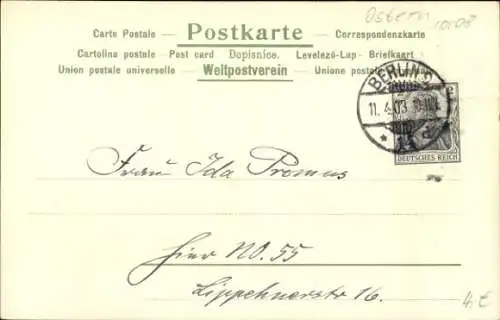 Ostern
Carte Postale — Postkarte — Correspondenzkarte
Cartolina postale - Post card Dopisnice. Levelező-Lap - Briefkaart
Union postale universelle — Weltpostverein — Unione postale
BERLIN
11. 4. 03
DEUTSCHES REICH
Frau Ida Premus
Hier NO. 55
Lippehnerstr 16.
4.€